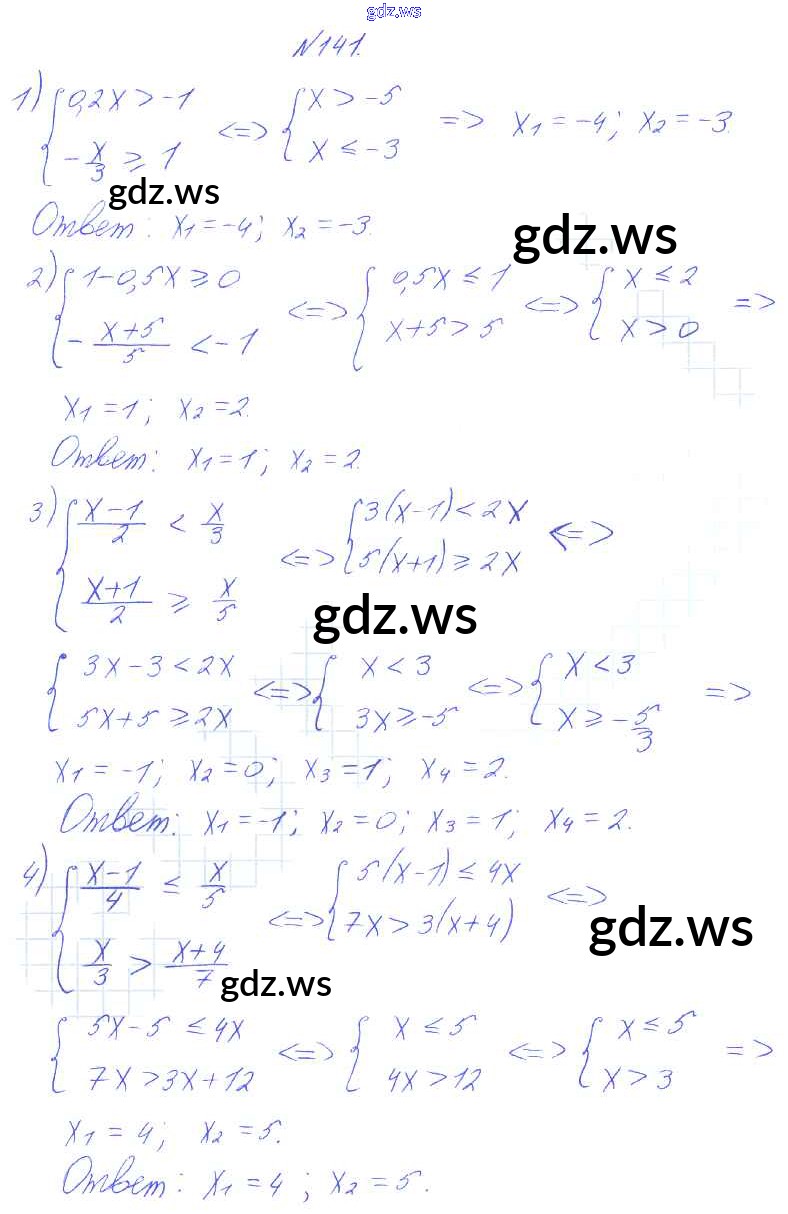 gdz.ws
№141.
1) { 0,2x > -1 ; -x/3 ≥ 1 <=> { x > -5 ; x ≤ -3 => x₁ = -4; x₂ = -3.
gdz.ws
Ответ: x₁ = -4; x₂ = -3.
gdz.ws
2) { 1-0,5x ≥ 0 ; - (x+5)/5 < -1 <=> { 0,5x ≤ 1 ; x+5 > 5 <=> { x ≤ 2 ; x > 0 =>
x₁ = 1; x₂ = 2.
Ответ: x₁ = 1; x₂ = 2.
3) { (x-1)/2 < x/3 ; (x+1)/2 ≥ x/5 <=> { 3(x-1) < 2x ; 5(x+1) ≥ 2x <=>
gdz.ws
{ 3x-3 < 2x ; 5x+5 ≥ 2x <=> { x < 3 ; 3x ≥ -5 <=> { x < 3 ; x ≥ -5/3 =>
x₁ = -1; x₂ = 0; x₃ = 1; x₄ = 2.
Ответ: x₁ = -1; x₂ = 0; x₃ = 1; x₄ = 2.
4) { (x-1)/4 ≤ x/5 ; x/3 > (x+4)/7 <=> { 5(x-1) ≤ 4x ; 7x > 3(x+4) <=>
gdz.ws
gdz.ws
{ 5x-5 ≤ 4x ; 7x > 3x+12 <=> { x ≤ 5 ; 4x > 12 <=> { x ≤ 5 ; x > 3 =>
x₁ = 4; x₂ = 5.
Ответ: x₁ = 4; x₂ = 5.